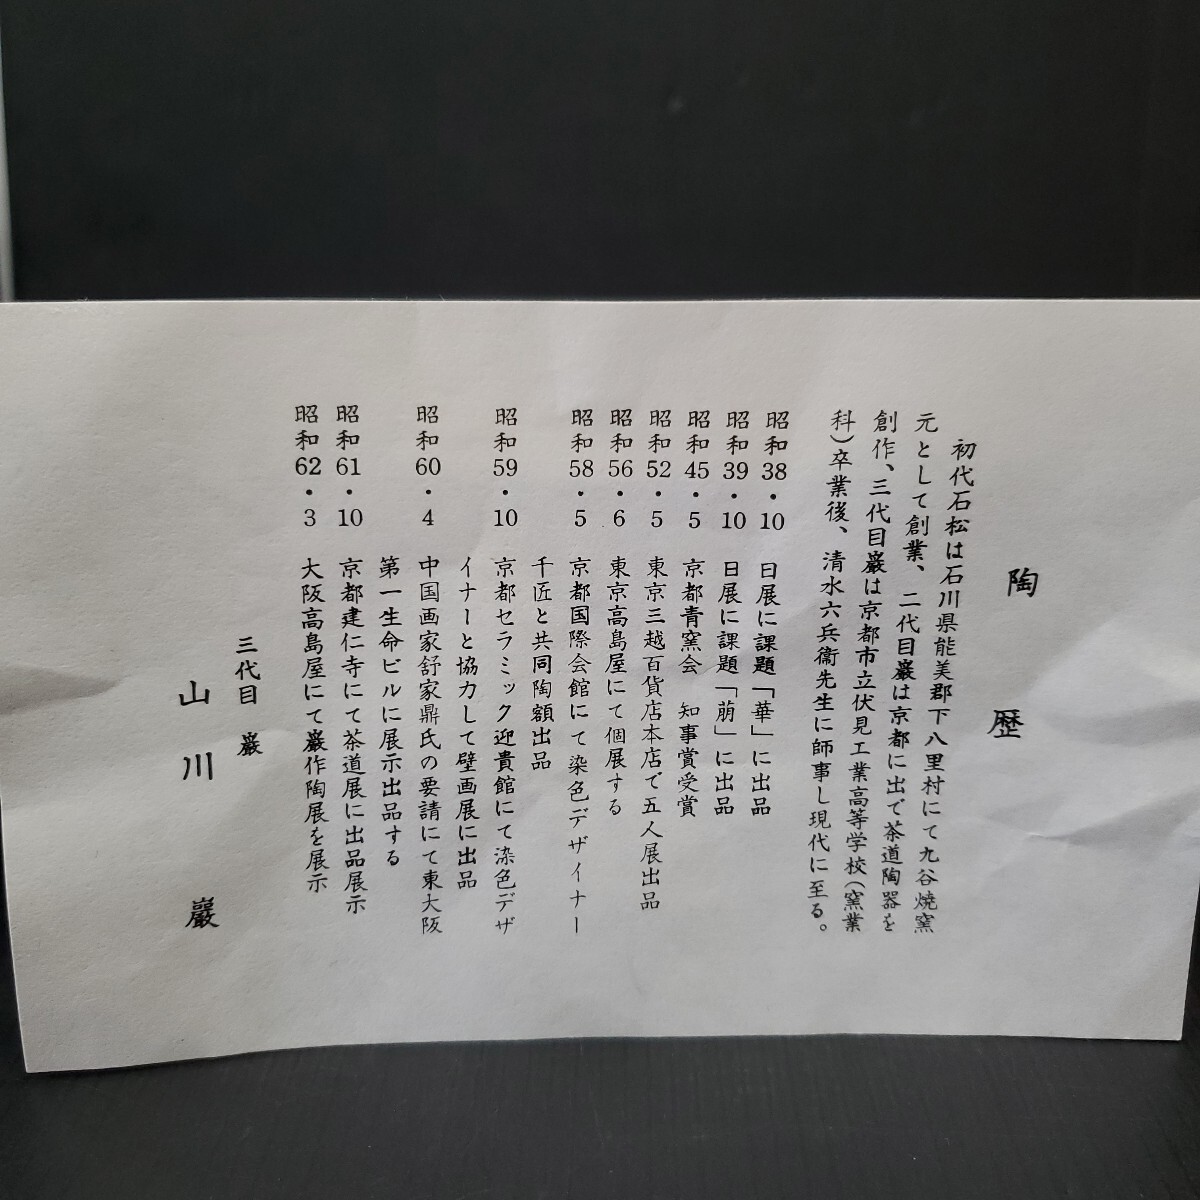 陶歴
初代石松は石川県能美郡下八里村にて九谷焼窯
元として創業、二代目巌は京都に出で茶道陶器を
創作、三代目巌は京都市立伏見工業高等学校(窯業
科)卒業後、清水六兵衞先生に師事し現代に至る。
昭和38・10 日展に課題「華」に出品
昭和39・10 日展に課題「萠」に出品
昭和45・5 京都青窯会 知事賞受賞
昭和52・5 東京三越百貨店本店で五人展出品
昭和56・6 東京高島屋にて個展する
昭和58・5 京都国際会館にて染色デザイナー
千匠と共同陶額出品
昭和59・10 京都セラミック迎貴館にて染色デザ
イナーと協力して壁画展に出品
昭和60・4 中国画家舒家鼎氏の要請にて東大阪
第一生命ビルに展示出品する
昭和61・10 京都建仁寺にて茶道展に出品展示
昭和62・3 大阪高島屋にて巌作陶展を展示
三代目 巌
山川 巌